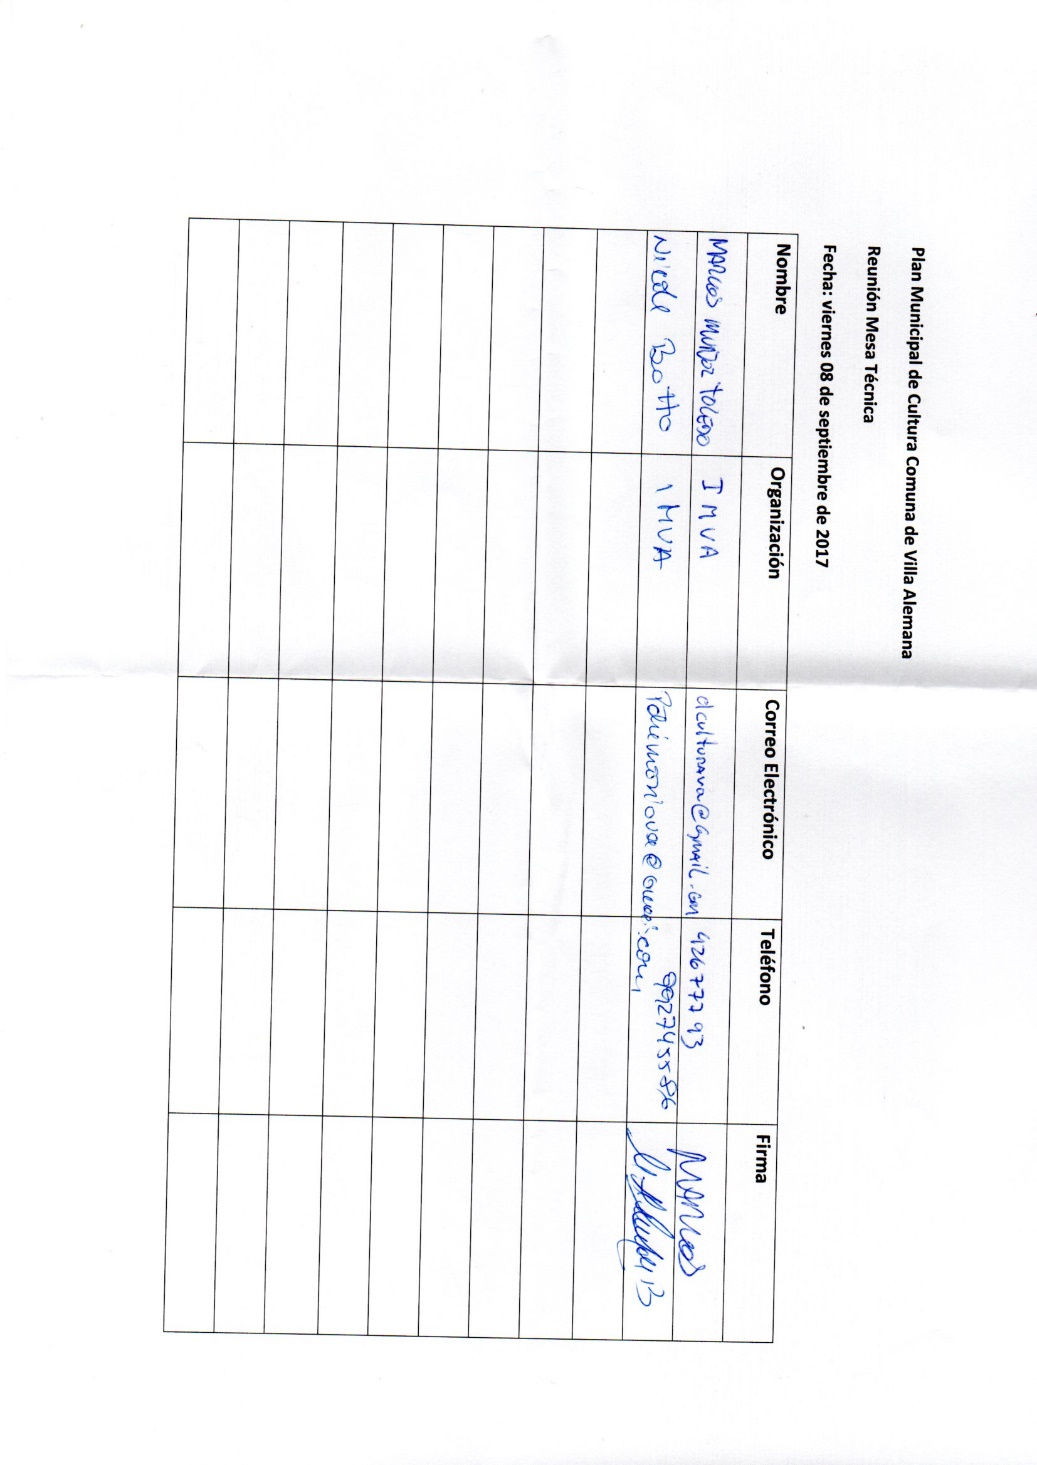 Plan Municipal de Cultura Comuna de Villa Alemana
Reunión Mesa Técnica
Fecha: viernes 08 de septiembre de 2017
Nombre Organización Correo Electrónico Teléfono Firma
MARCOS MUÑOZ TOLEDO IMVA dculturava@gmail.com 92677793 MARCOS
Nicole Botto IMVA 992745586